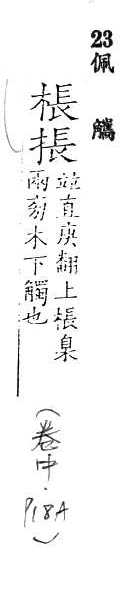 23
佩
觿
棖振
竝直庚翻上棖臬
兩旁木下觸也
(卷中·
P18A)